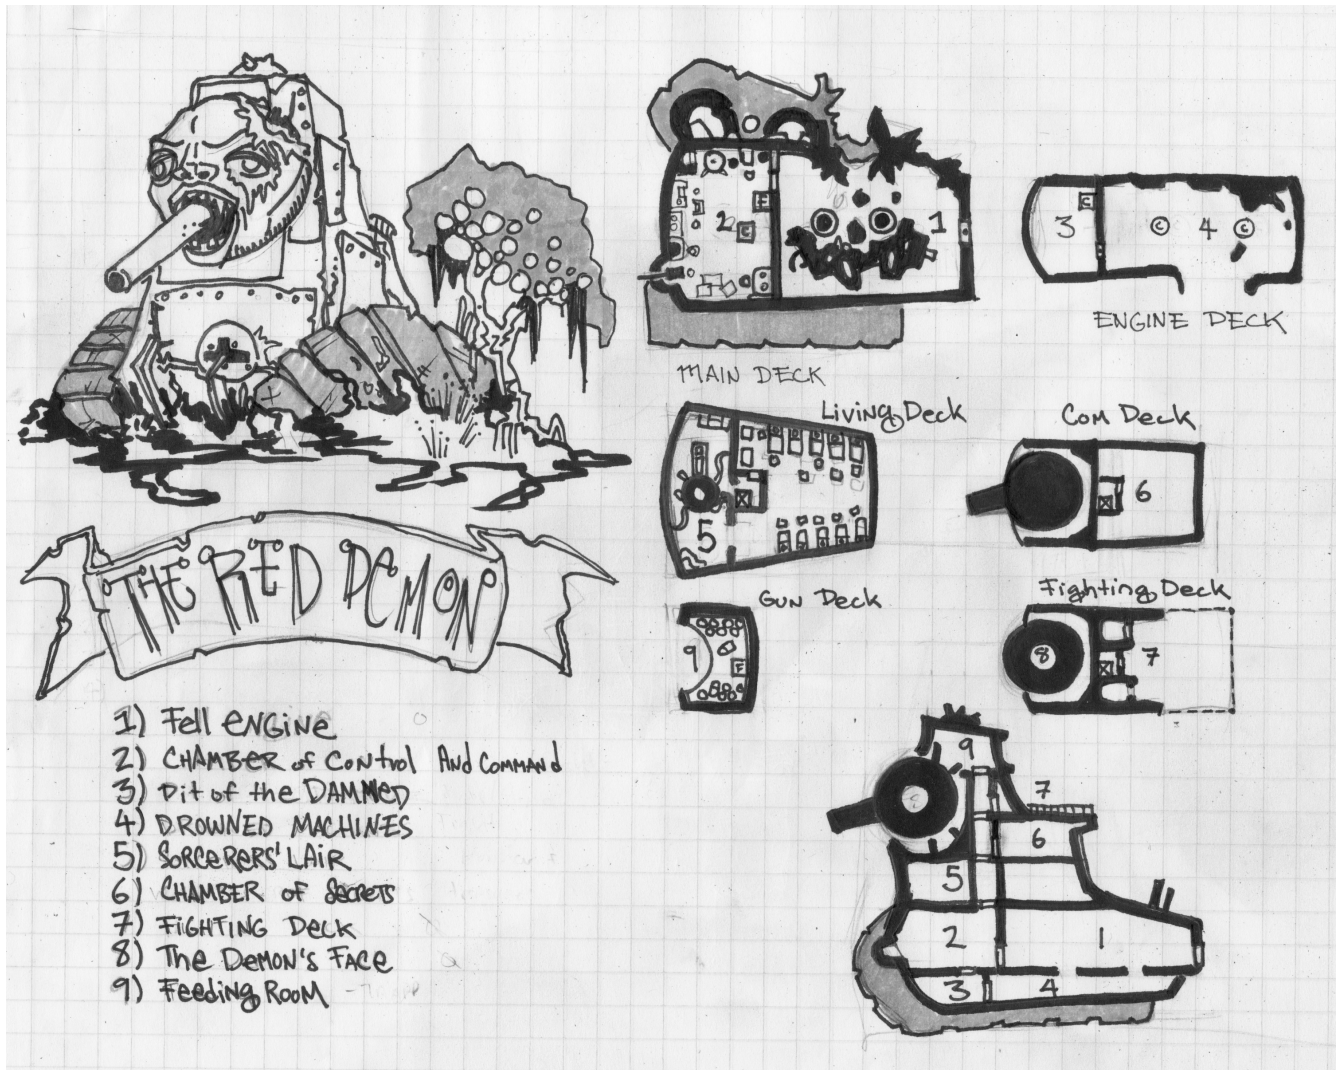 THE RED DEMON
1) Fell ENGINE
2) CHAMBER of Control And Command
3) Pit of the DAMMED
4) DROWNED MACHINES
5) SORCERERS' LAIR
6) CHAMBER of Secrets
7) FIGHTING Deck
8) The Demon's Face
9) Feeding Room
2
F
C
1
MAIN DECK
3
C
C
4
C
ENGINE DECK
Living Deck
5
Com Deck
6
Gun Deck
9
F
Fighting Deck
8
7
9
8
7
6
5
2
1
3
4